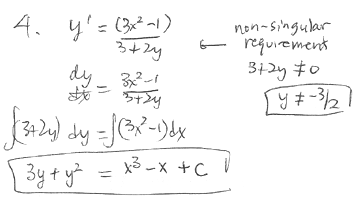 4. y' = (3x²-1)/3+2y ← non-singular
requirement
3+2y ≠ 0
dy/dx = 3x²-1/3+2y
y ≠ -3/2
∫(3+2y) dy = ∫(3x²-1)dx
3y + y² = x³ - x + C